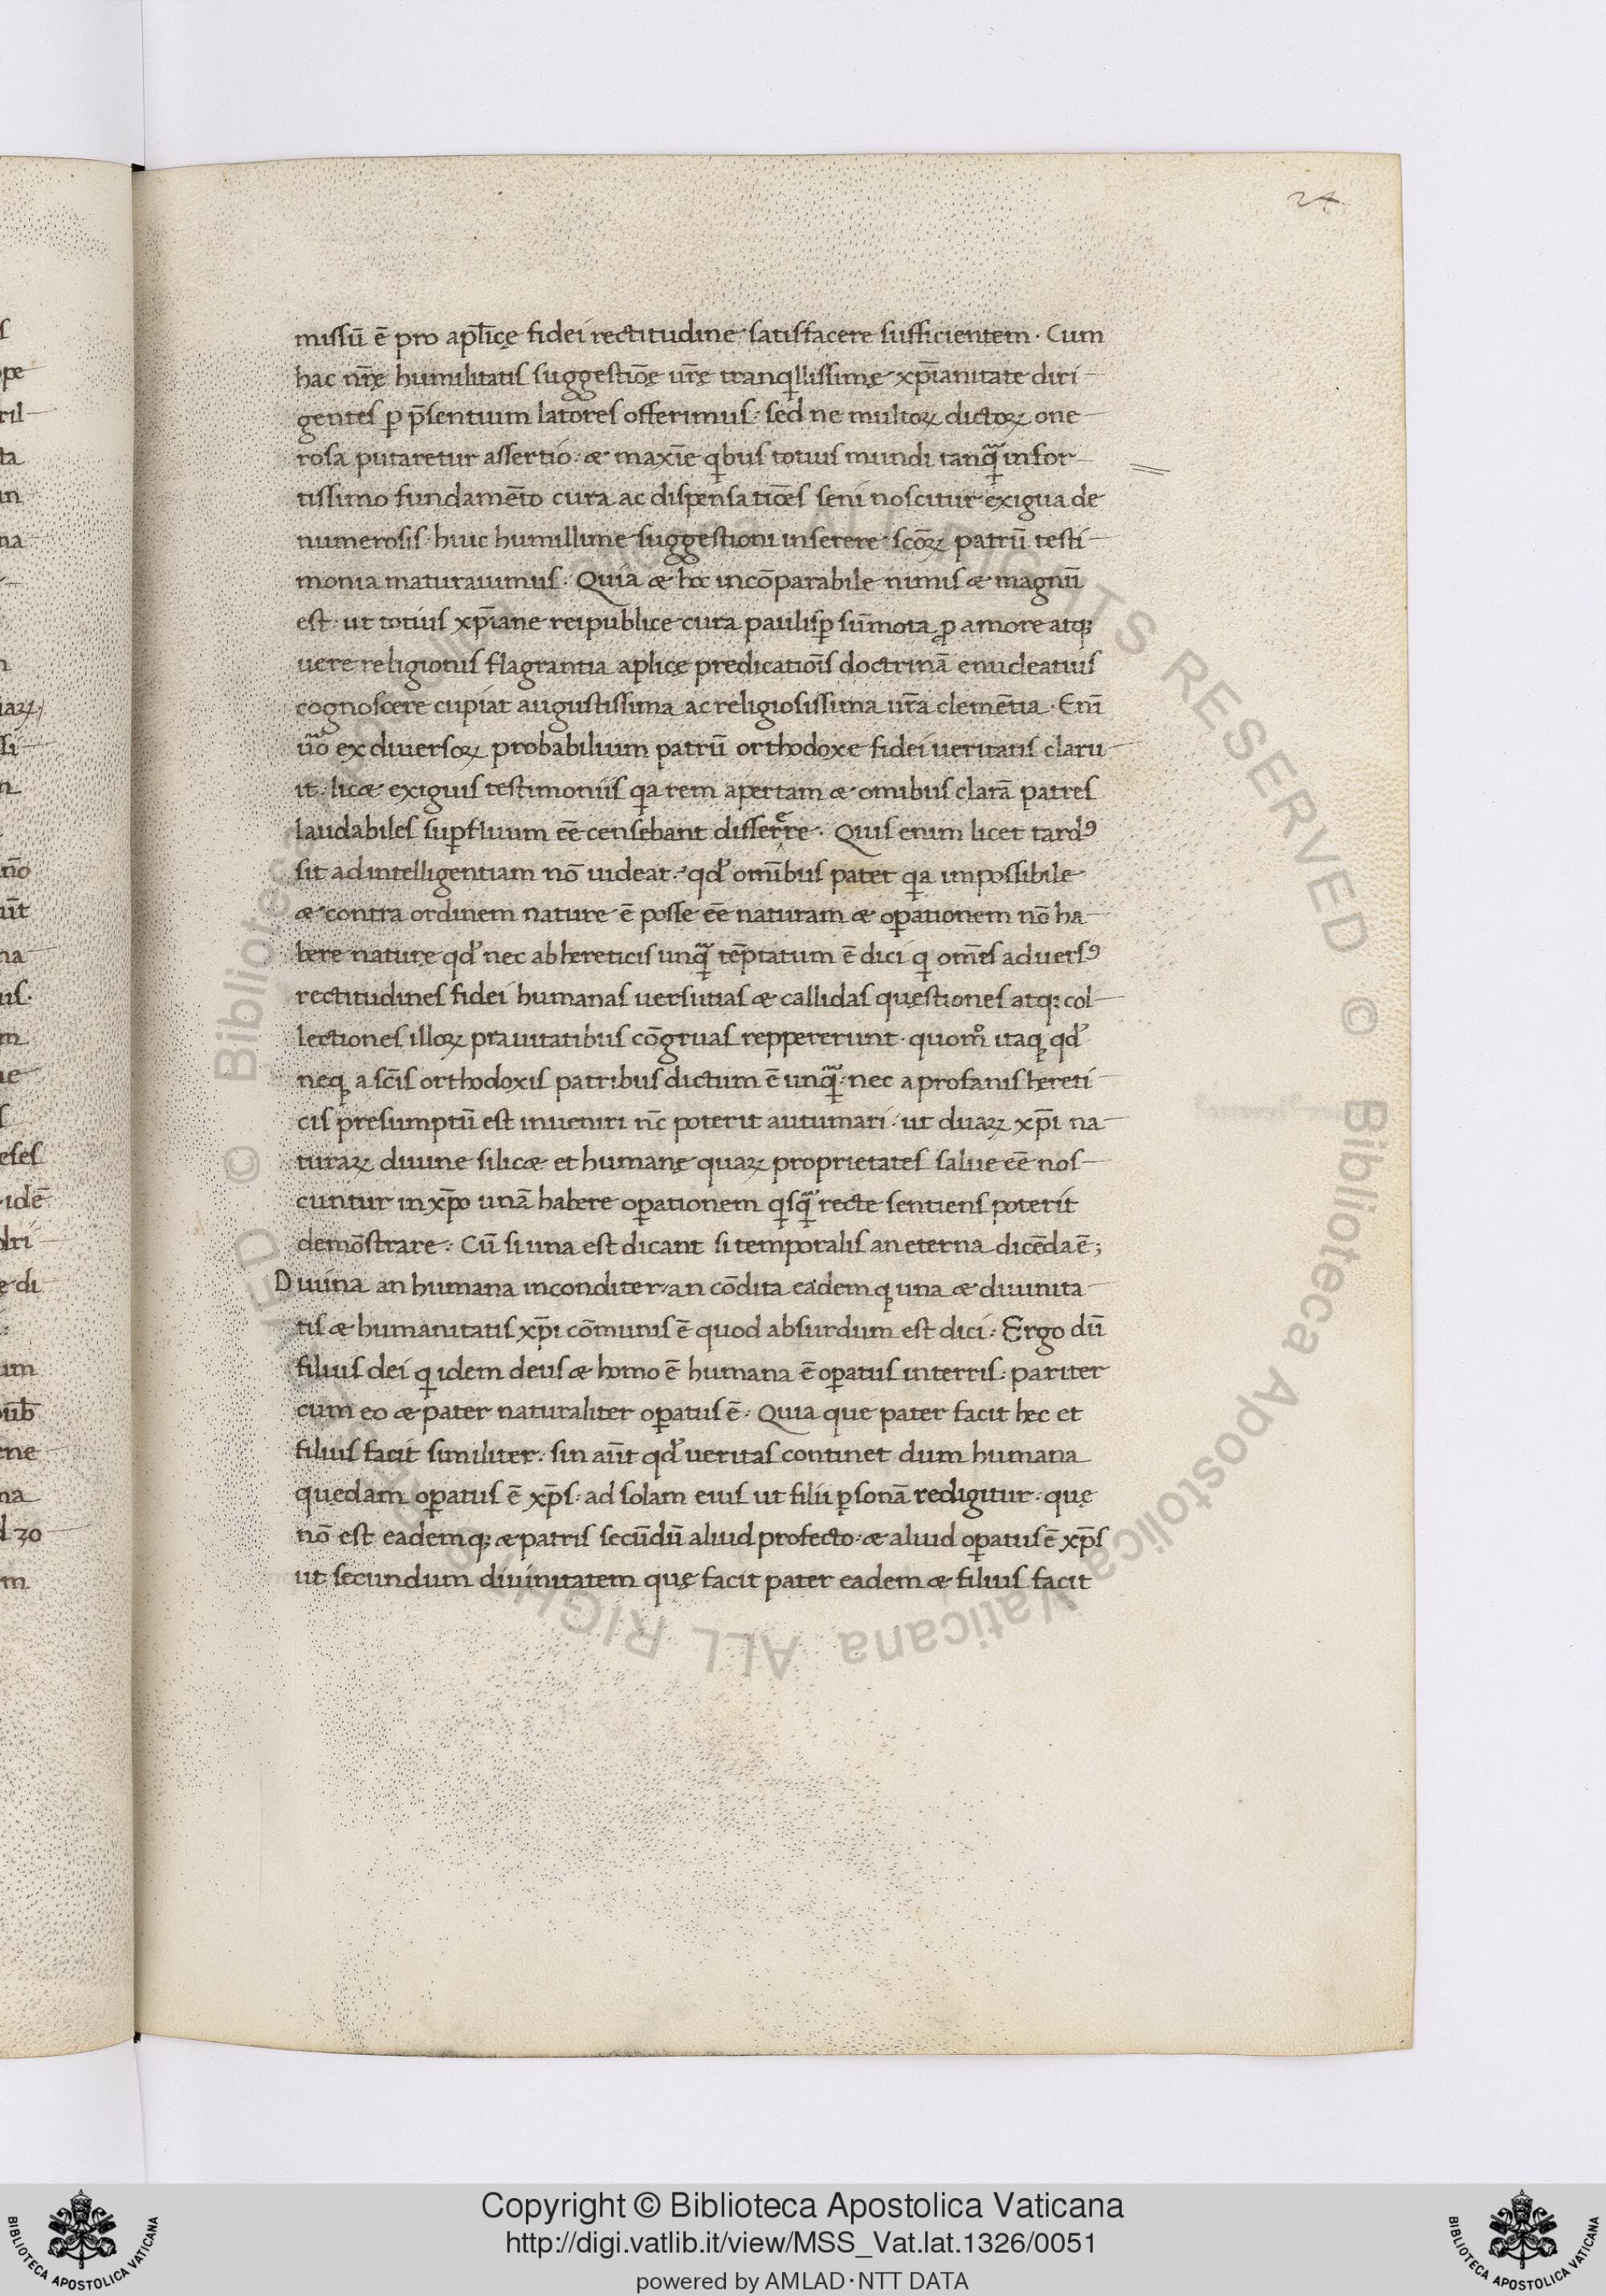 24
missū ē pro apl̄icę fidei rectitudine satisfacere sufficientem· Cum
hac nr̄ę humilitatis suggestiōę ur̄ę tranqllissimę xp̄ianitate diri
gentes ꝑ p̄sentium latores offerimus· sed ne multoꝝ dictoꝝ one
rosa putaretur assertio· æ maxīe qbus totius mundi tanqͣ infor
tissimo fundamēto cura ac dispensatiōes seni noscitur exigua de
numerosis· huic humillime suggestioni inserere scōꝝ patrū testi
monia maturauimus· Quia æ hoc incōparabile nimis æ magnū
est· ut totius xp̄iane reipublice cura paulisꝑ sūmota ꝓ amore atqꝫ
uere religionis flagrantia aplicę predicatiōis doctrinā enucleatius
cognoscere cupiat augustissima ac religiosissima ur̄a clemētia· Eni
ūo ex diuersoꝝ probabilium patrū orthodoxe fidei ueritatis claru
it· licæ exiguis testimoniis qa rem apertam æ omibus clarā patres
laudabiles suꝑfluum eē censebant disserere· Quis enim licet tardꝰ
sit ad intelligentiam nō uideat· qd̓ omībus patet qa impossibile
æ contra ordinem nature ē posse eē naturam æ oꝑationem nō ha
bere naturę qd̓ nec ab hereticis unqͣ tēptatum ē dici q om̄es aduersꝰ
rectitudines fidei humanas uersutias æ callidas quęstiones atqꝫ col
lectiones illoꝝ prauitatibus cōgruas reppererunt· quomͦ itaq qd̓
neq a scīs orthodoxis patribus dictum ē unqͣ· nec a profanis hereti
cis presumptū est inueniri nc̄ poterit autumari· ut duaꝝ xp̄i na
turaꝝ diuine silicæ et humanę quaꝝ proprietates salue eē nos
cuntur in xp̄o unā habere oꝑationem qsqͣ recte sentiens poterit
demōstrare· Cū si una est dicant si temporalis an eterna dicēda ē;
Diuina an humana inconditer· an cōdita eadem q una æ diuinita
tis æ humanitatis xp̄i cōmunis ē quod absurdum est dici· Ergo dū
filius dei q idem deus æ homo ē humana ē oꝑatus interris· pariter
cum eo æ pater naturaliter oꝑatus ē· Quia que pater facit hęc et
filius facit similiter· sin aūt qd̓ ueritas continet dum humana
quędam oꝑatus ē xp̄s· ad solam eius ut filii ꝑsonā redigitur· quę
nō est eademqꝫ æ patris secūdū aliud profecto· æ aliud oꝑatus ē xp̄s
ut secundum diuinitatem quę facit pater eadem æ filius facit
Copyright © Biblioteca Apostolica Vaticana
http://digi.vatlib.it/view/MSS_Vat.lat.1326/0051
powered by AMLAD·NTT DATA